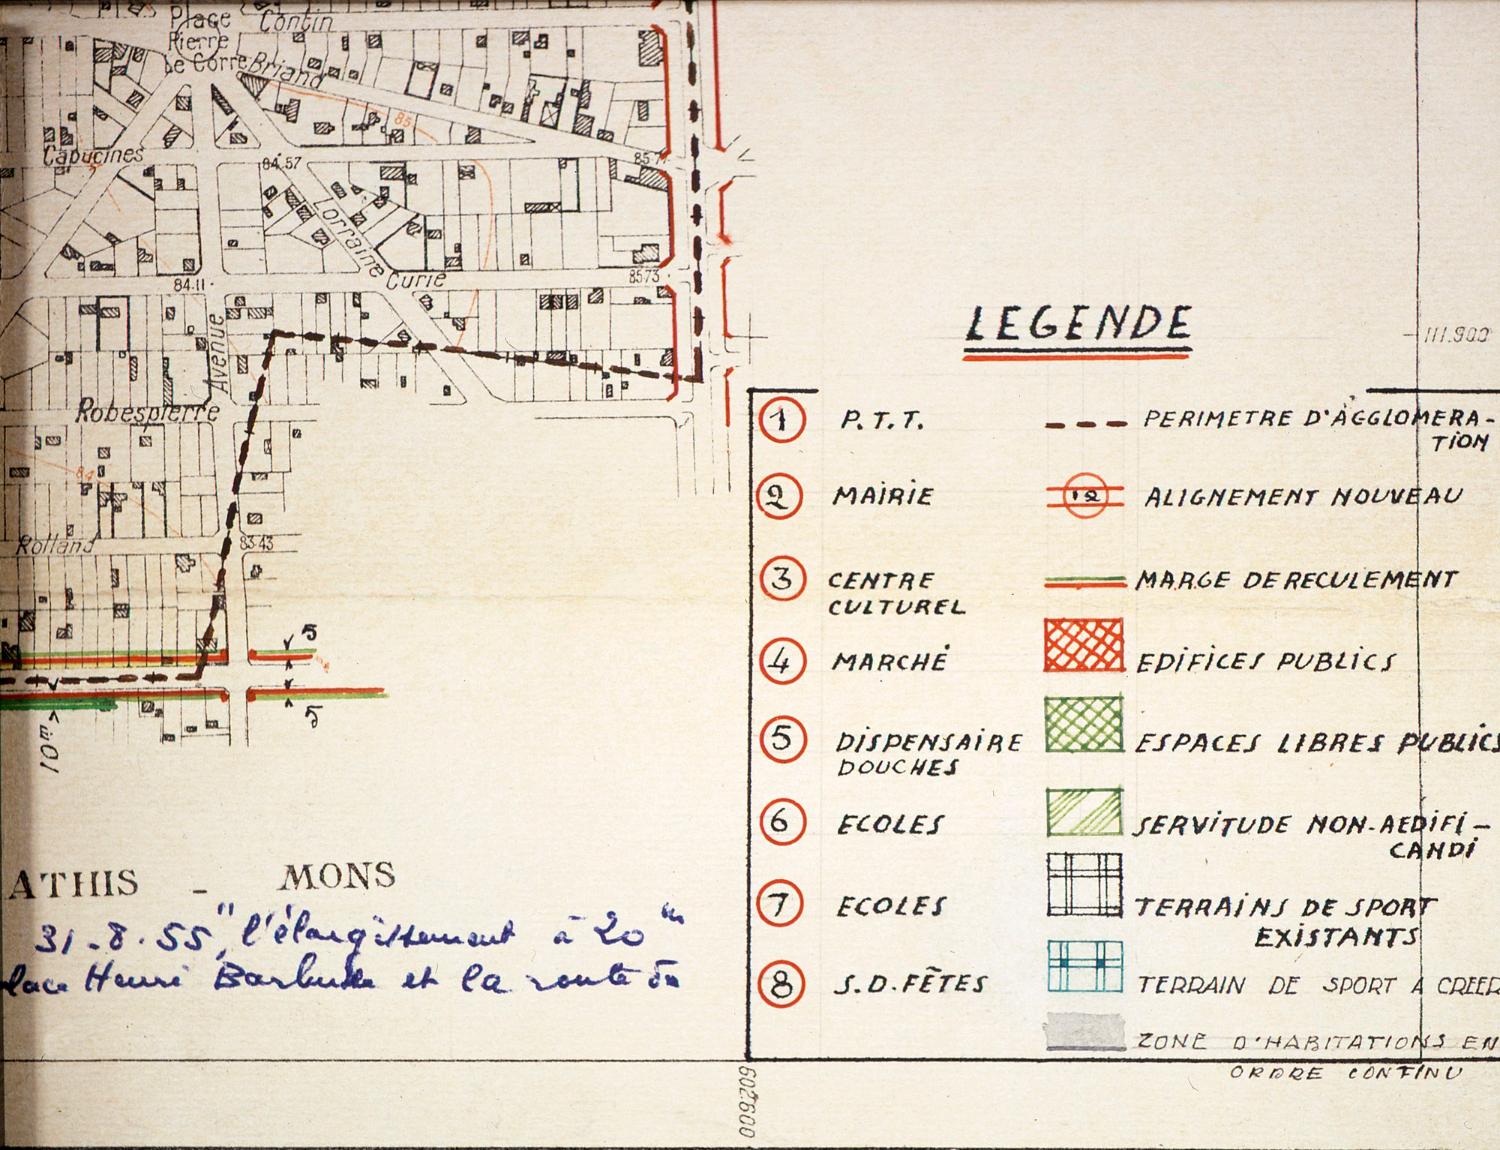 Place
Contin
Pierre
Le Corre
Briand
85
Capucines
84.57
Lorraine
Curie
84.11
8573
Avenue
Robespierre
84
Rolland
83.43
5
5
ATHIS - MONS
31-8-55, "l'élargissement à 20 m
Henri Barbusse et la route de
LEGENDE
111.900
1 P.T.T.
2 MAIRIE
3 CENTRE
CULTUREL
4 MARCHÉ
5 DISPENSAIRE
DOUCHES
6 ECOLES
7 ECOLES
8 S.D.FÊTES
PERIMETRE D'AGGLOMERA-
TION
12 ALIGNEMENT NOUVEAU
MARGE DE RECULEMENT
EDIFICES PUBLICS
ESPACES LIBRES PUBLICS
SERVITUDE NON-AEDIFI-
CANDI
TERRAINS DE SPORT
EXISTANTS
TERRAIN DE SPORT A CREER
ZONE D'HABITATIONS EN
ORDRE CONTINU
602600